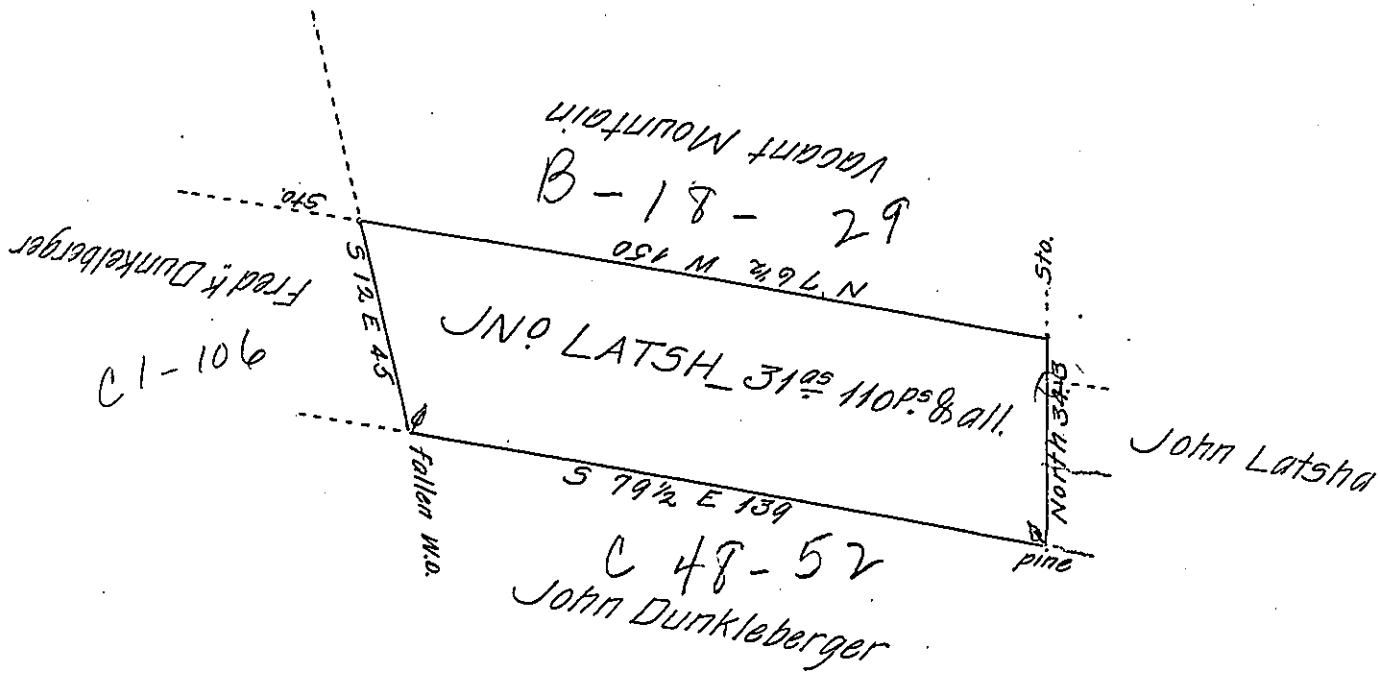 Vacant Mountain
B - 18 - 29
N 76½ W 150
Sto.
Sto.
Fredk. Dunkelberger
C 1 - 106
S 12 E 45
JNO. LATSH_ 31as 110ps. & all.
North 34.3
John Latsha
fallen W.O.
S 79½ E 139
pine
C 48 - 52
John Dunkleberger